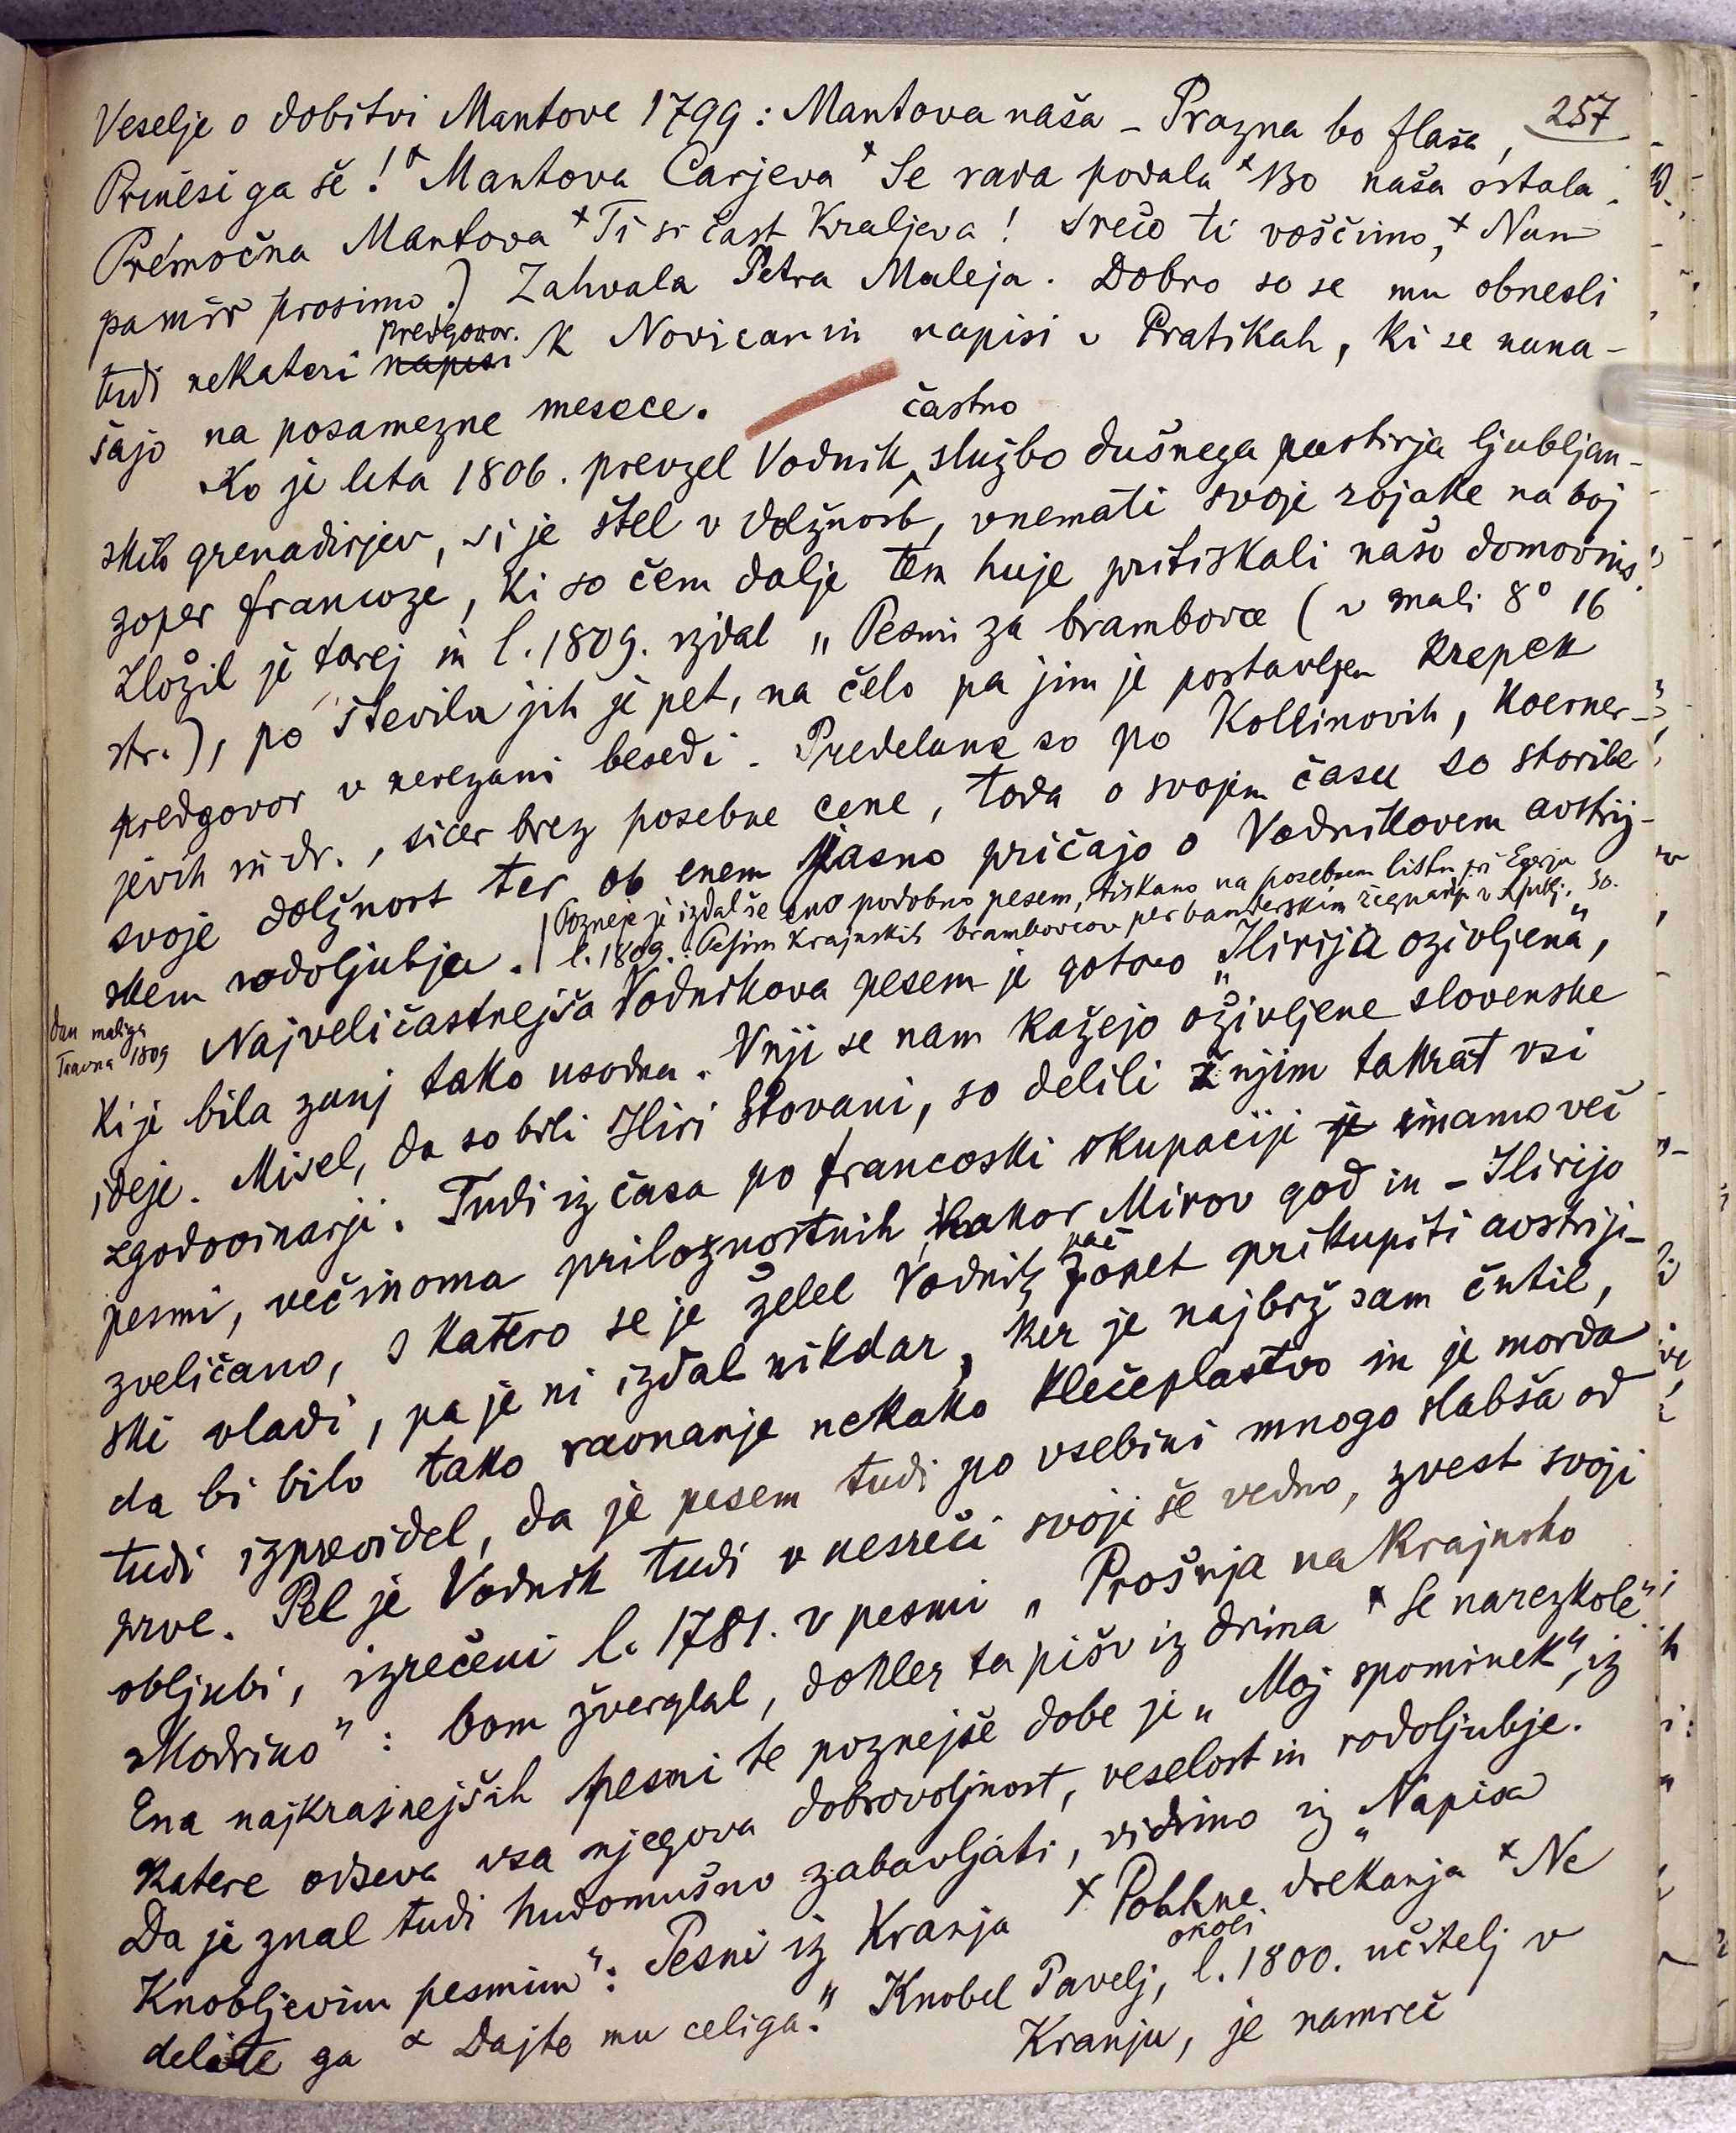 257
Veselje o dobitvi Mantove 1799: Mantova naša – Prazna bo flaša,
Prinesi ga še! × Mantova Carjeva × Se rada podala × Bo naša ostala.
Premočna Mantova × Ti si čast Kraljeva! Srečo ti voščimo, × Nam
pamir prosimo.) Zahvala Petra Maleja. Dobro so se mu obnesli
predgovor.
tudi nekateri napisi k Novicam in napisi v Pratikah, ki se nana-
šajo na posamezne mesece.
častno
Ko je leta 1806. prevzel Vodnik službo dušnega pastirja ljubljan-
skih grenadirjev, si je štel v dolžnost, vnemati svoje rojake na boj
zoper francoze, ki so čem dalje tem huje pritiskali našo domovino.
Zložil je torej in l. 1809. izdal „Pesmi za brambovce (v mali 8° 16
str.), po številu jih je pet, na čelo pa jim je postavljen krepek
predgovor v nerezani besedi. Predelane so po Kollinovih, Koerner-
jevih in dr., sicer brez posebne cene, toda o svojem času so storile
svoje dolžnost ter ob enem jasno pričajo o Vodnikovem avstrij-
skem rodoljubju. | Pozneje je izdal še eno podobno pesem, tiskano na posebnem listu pri Egerju
l. 1809.: Pesim krajnskih brambovcov per banderskim žegnanji v Ljublj. 30.
dan maliga
Travna 1809
Najveličastnejša Vodnikova pesem je gotovo „Ilirija oživljena“,
ki je bila zanj tako usodna. V nji se nam kažejo oživljene slovenske
ideje. Misel, da so bili Iliri Slovani, so delili ž njim takrat vsi
zgodovinarji. Tudi iz časa po francoski okupaciji je imamo več
pesmi, večinoma priložnostnih, kakor Mirov god in – Ilirijo
zveličano, s katero se je želel Vodnik pač zopet prikupiti avstrij-
ski vladi, pa je ni izdal nikdar, ker je najbrž sam čutil,
da bi bilo tako ravnanje nekako klečeplastvo in je morda
tudi izprevidel, da je pesem tudi po vsebini mnogo slabša od
prve. Pel je Vodnik tudi v nesreči svoji še vedno, zvest svoji
obljubi, izrečeni l. 1781. v pesmi „Prošnja na Krajnsko
Modrino“: bom žverglal, dokler ta pišv iz drina × Se narezkole“
Ena najkrasnejših pesmi te poznejše dobe je „Moj spominek“, iz
katere odseva vsa njegova dobrovoljnost, veselost in rodoljubje.
Da je znal tudi hudomušno zabavljati, vidimo iz „Napisa
Knobljevim pesmim“: Pesni iz Kranja × Polhne drekanja × Ne
delite ga × Dajte mu celiga.“ Knobel Pavelj, okoli l. 1800. učitelj v
Kranju, je namreč